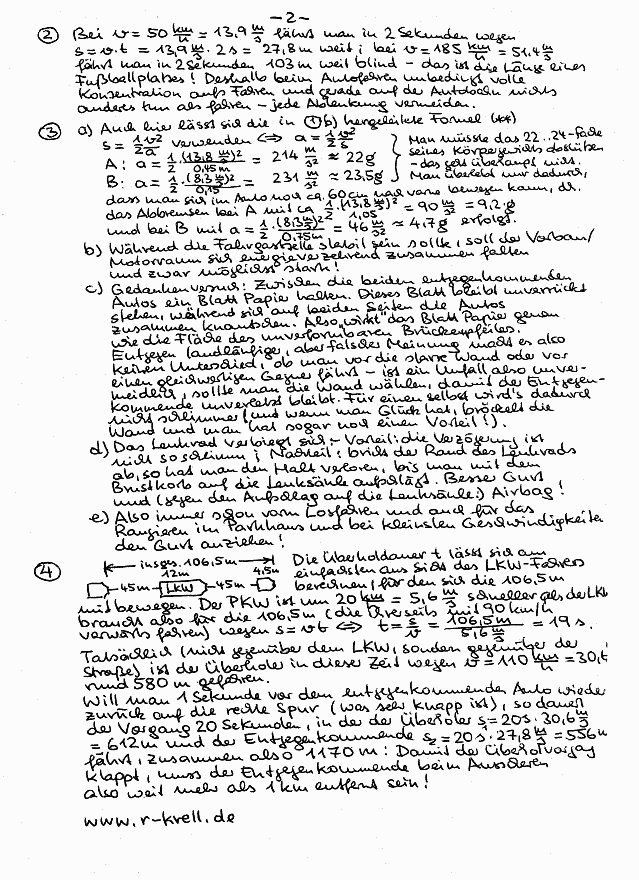 - 2 -
② Bei v = 50 km/h = 13,9 m/s fährt man in 2 Sekunden wegen
s = v·t = 13,9 m/s · 2s = 27,8m weit; bei v = 185 km/h = 51,4 m/s
fährt man in 2 Sekunden 103m weit blind - das ist die Länge eines
Fußballplatzes! Deshalb beim Autofahren unbedingt volle
Konzentration aufs Fahren und gerade auf der Autobahn nichts
anderes tun als fahren - jede Ablenkung vermeiden.
③ a) Auch hier lässt sich die in ① b) hergeleitete Formel (**)
s = 1/2 v²/a verwenden <=> a = 1/2 v²/s
A: a = 1/2 (13,8 m/s)²/0,45m = 214 m/s² ≈ 22g
B: a = 1/2 (8,3 m/s)²/0,15 = 231 m/s² ≈ 23,5g
Man müsste das 22..24-fache
seines Körpergewichts abstützen
- das geht überhaupt nicht.
Man überlebt nur dadurch,
dass man sich im Auto noch ca. 60cm nach vorne bewegen kann, d.h.
das Abbremsen bei A mit ca 1/2 (13,8 m/s)²/1,05 = 90 m/s² = 9,2g
und bei B mit a = 1/2 (8,3 m/s)²/0,75m = 46 m/s² ≈ 4,7g erfolgt.
b) Während die Fahrgastzelle stabil sein sollte, soll der Vorbau/
Motorraum sich energieverzehrend zusammen falten
und zwar möglichst stark!
c) Gedankenversuch: Zwischen die beiden entgegenkommenden
Autos ein Blatt Papier halten. Dieses Blatt bleibt unverrückt
stehen, während sich auf beiden Seiten die Autos
zusammen knautschen. Also „wirkt" das Blatt Papier genau
wie die Fläche des unverformbaren Brückenpfeilers.
Entgegen landläufiger, aber falscher Meinung macht es also
keinen Unterschied, ob man vor die starre Wand oder vor
einen gleichwertigen Gegner fährt - ist ein Unfall also unver-
meidlich, sollte man die Wand wählen, damit der Entgegen-
kommende unverletzt bleibt. Für einen selbst wird's dadurch
nicht schlimmer (und wenn man Glück hat, bröckelt die
Wand und man hat sogar noch einen Vorteil!).
d) Das Lenkrad verbiegt sich:- Vorteil: die Verzögerung ist
nicht so schlimm; Nachteil: bricht der Rand des Lenkrads
ab, so hat man den Halt verloren, bis man mit dem
Brustkorb auf die Lenksäule aufschlägt. Besser Gurt
und (gegen den Aufschlag auf die Lenksäule:) Airbag!
e) Also immer schon vorm Losfahren und auch für das
Rangieren im Parkhaus und bei kleinsten Geschwindigkeiten
den Gurt anziehen!
④ insges. 106,5m
12m 4,5m
45m LKW 45m
Die Überholdauer t lässt sich am
einfachsten aus Sicht des LKW-Fahrers
berechnen, für den sich die 106,5m
mitbewegen. Der PKW ist um 20 km/h = 5,6 m/s schneller als der LKW
braucht also für die 106,5m (die ihrerseits mit 90 km/h
vorwärts fahren) wegen s = vt <=> t = s/v = 106,5m/5,6 m/s = 19 s.
Tatsächlich (nicht gegenüber dem LKW, sondern gegenüber der
Straße) ist der Überholer in dieser Zeit wegen v = 110 km/h = 30,
rund 580 m gefahren.
Will man 1 Sekunde vor dem entgegenkommenden Auto wieder
zurück auf die rechte Spur (was sehr knapp ist), so dauert
der Vorgang 20 Sekunden, in der der Überholer s₁ = 20s · 30,6 m/s
= 612m und der Entgegenkommende s₂ = 20s · 27,8 m/s = 556m
fährt, zusammen also 1170 m: Damit der Überholvorgang
klappt, muss der Entgegenkommende beim Ausscheren
also weit mehr als 1km entfernt sein!
www.r-krell.de